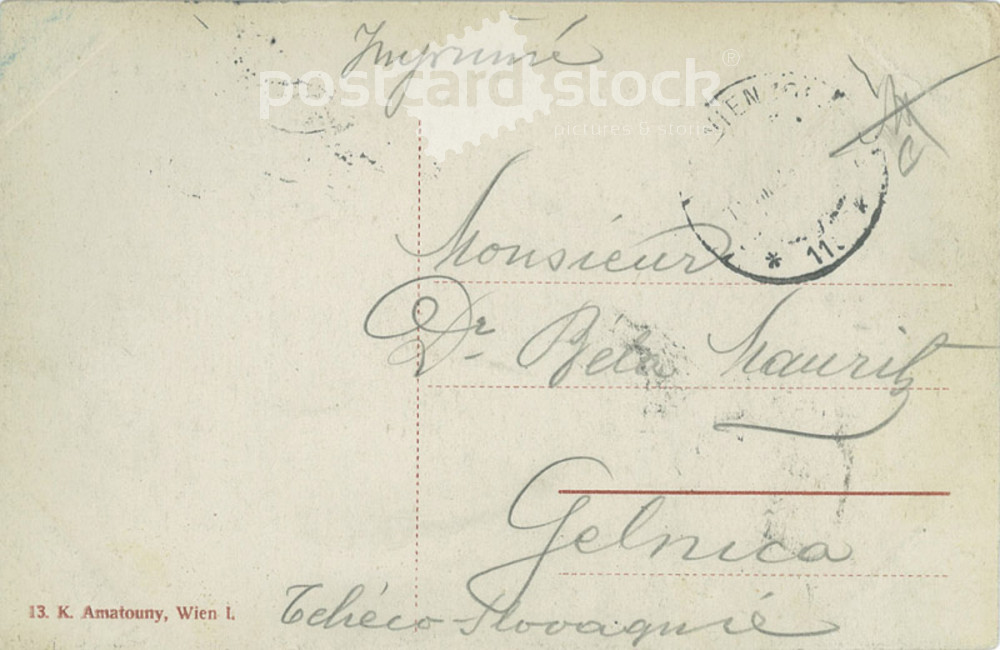 Imprimé
postcard stock®
pictures & stories
WIEN
* 11. *
Monsieur
Dr. Béla Mauritz
Gelnica
Tchéco-Slovaquie
13. K. Amatouny, Wien I.